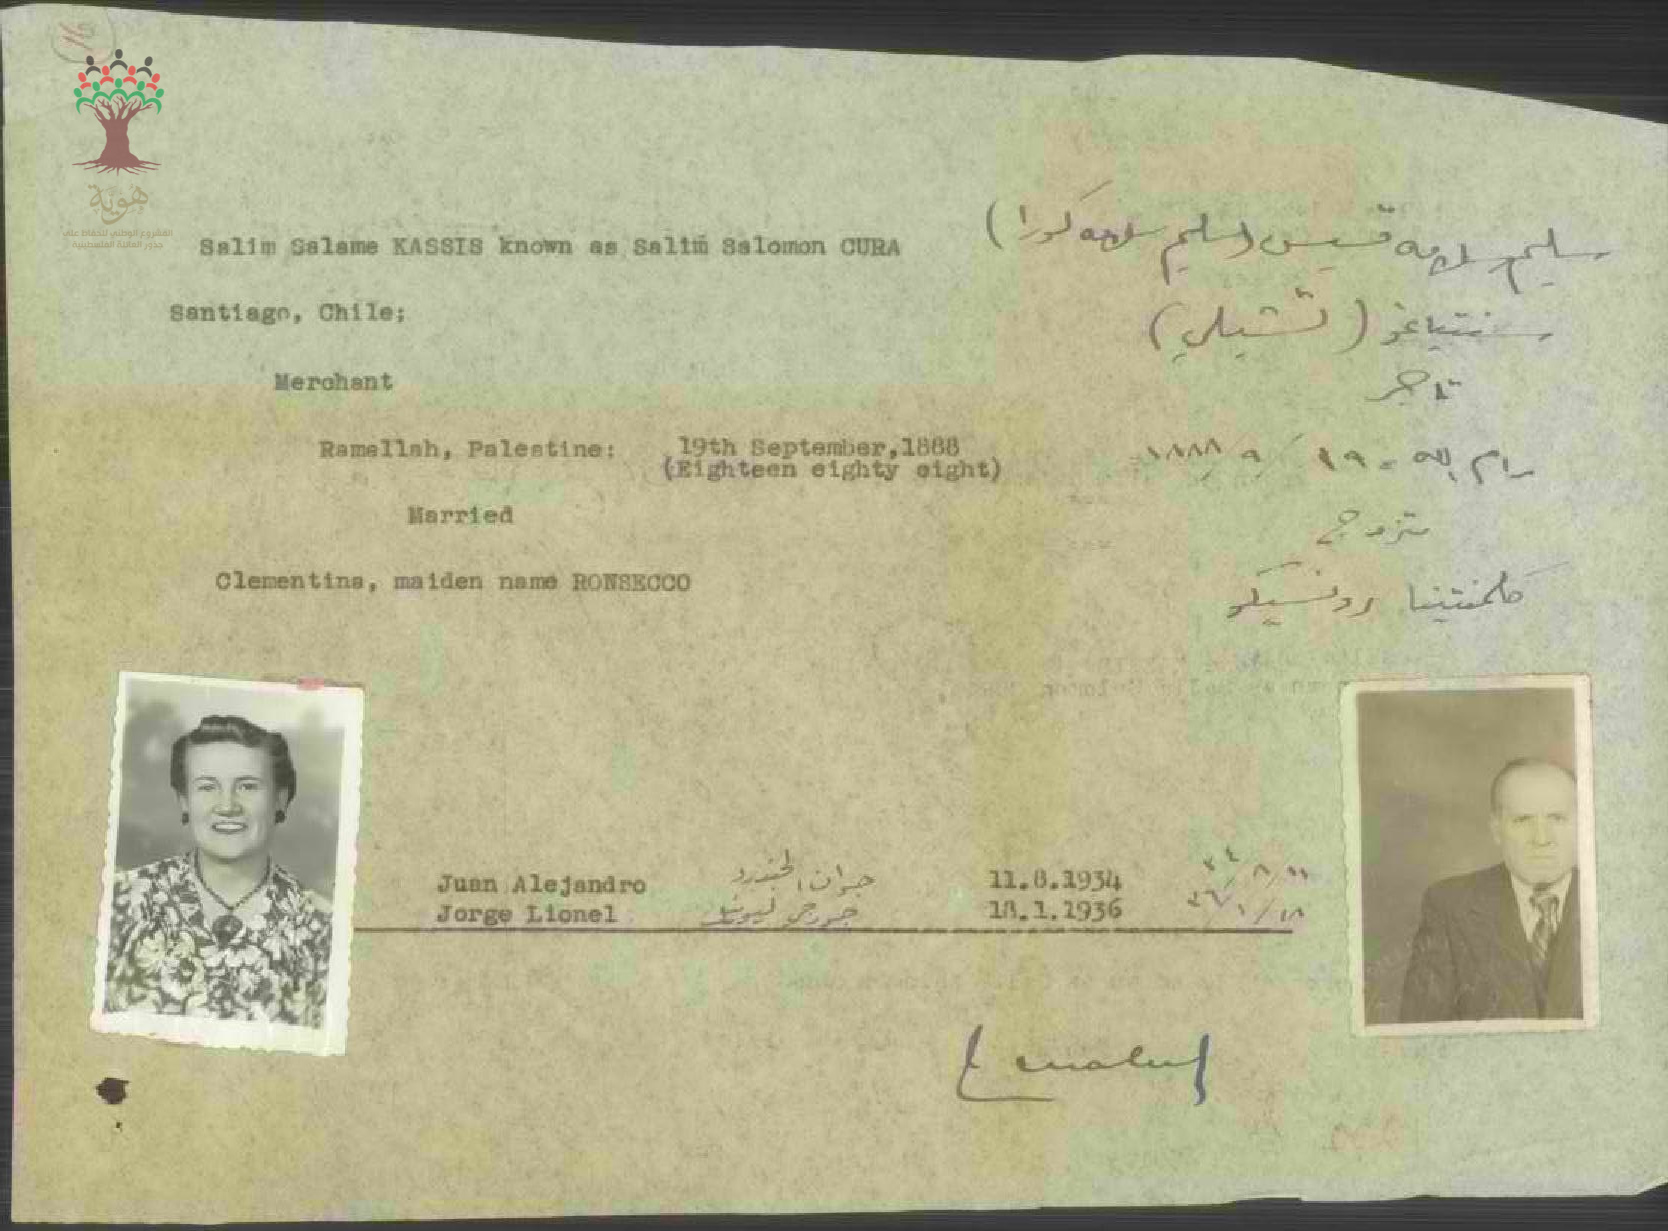 هوية
المشروع الوطني للحفاظ على
جذور العائلة الفلسطينية
Salim Salame KASSIS known as Salim Salomon CURA
سليم سلامه قسيس (سليم سلامه كورا)
Santiago, Chile;
سنتياغو (تشيلي)
Merchant
تاجر
Ramallah, Palestine: 19th September,1888
(Eighteen eighty eight)
رام الله - ١٩ / ٩ / ١٨٨٨
Married
متزوج
Clementina, maiden name RONSECCO
كلمنتينا رونسيكو
Juan Alejandro جوان 11.8.1934 ١١/٨/٣٤
Jorge Lionel جورج ليونيل 18.1.1936 ١٨/١/٣٦